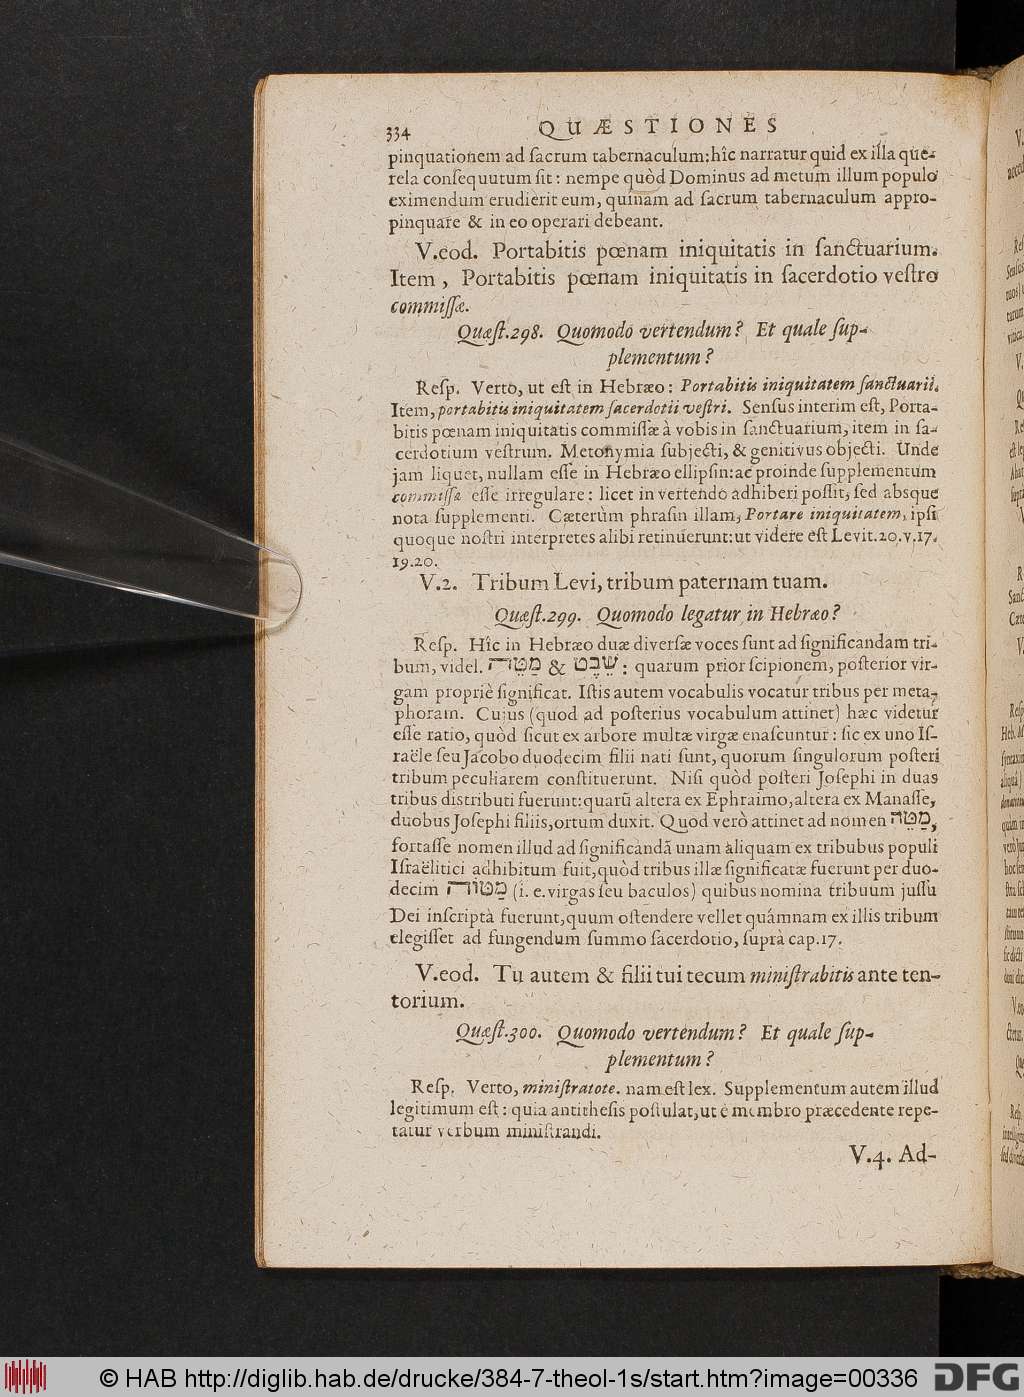 334 QUÆSTIONES
pinquationem ad ſacrum tabernaculum: hîc narratur quid ex illa que-
rela conſequutum ſit: nempe quòd Dominus ad metum illum populo
eximendum erudierit eum, quinam ad ſacrum tabernaculum appro-
pinquare & in eo operari debeant.
V.eod. Portabitis pœnam iniquitatis in ſanctuarium.
Item, Portabitis pœnam iniquitatis in ſacerdotio veſtro
commiſſæ.
Quæſt.298. Quomodo vertendum? Et quale ſup-
plementum?
Reſp. Verto, ut eſt in Hebræo: Portabitis iniquitatem ſanctuarii.
Item, portabitis iniquitatem ſacerdotii veſtri. Senſus interim eſt, Porta-
bitis pœnam iniquitatis commiſſæ à vobis in ſanctuarium, item in ſa-
cerdotium veſtrum. Metonymia ſubjecti, & genitivus objecti. Unde
jam liquet, nullam eſſe in Hebræo ellipſin: ac proinde ſupplementum
commiſſæ eſſe irregulare: licet in vertendo adhiberi poſſit, ſed absque
nota ſupplementi. Cæterùm phraſin illam, Portare iniquitatem, ipſi
quoque noſtri interpretes alibi retinuerunt: ut videre eſt Levit.20.v.17.
19.20.
V.2. Tribum Levi, tribum paternam tuam.
Quæſt.299. Quomodo legatur in Hebræo?
Reſp. Hîc in Hebræo duæ diverſæ voces ſunt ad ſignificandam tri-
bum, videl. מַטֶּה & שֵׁבֶט: quarum prior ſcipionem, poſterior vir-
gam propriè ſignificat. Iſtis autem vocabulis vocatur tribus per meta-
phoram. Cujus (quod ad poſterius vocabulum attinet) hæc videtur
eſſe ratio, quòd ſicut ex arbore multæ virgæ enaſcuntur: ſic ex uno Iſ-
raële ſeu Jacobo duodecim filii nati ſunt, quorum ſingulorum poſteri
tribum peculiarem conſtituerunt. Niſi quòd poſteri Joſephi in duas
tribus distributi fuerunt: quarũ altera ex Ephraimo, altera ex Manaſſe,
duobus Joſephi filiis, ortum duxit. Quod verò attinet ad nomen מַטֶּה,
fortaſſe nomen illud ad ſignificandã unam aliquam ex tribubus populi
Iſraëlitici adhibitum fuit, quòd tribus illæ ſignificatæ fuerunt per duo-
decim מַטּוֹת (i. e. virgas ſeu baculos) quibus nomina tribuum juſſu
Dei inſcripta fuerunt, quum oſtendere vellet quámnam ex illis tribum
elegiſſet ad fungendum ſummo ſacerdotio, ſuprà cap.17.
V.eod. Tu autem & filii tui tecum miniſtrabitis ante ten-
torium.
Quæſt.300. Quomodo vertendum? Et quale ſup-
plementum?
Reſp. Verto, miniſtratote. nam eſt lex. Supplementum autem illud
legitimum eſt: quia antitheſis poſtulat, ut è membro præcedente repe-
tatur verbum miniſtrandi.
V.4. Ad-
© HAB http://diglib.hab.de/drucke/384-7-theol-1s/start.htm?image=00336
DFG